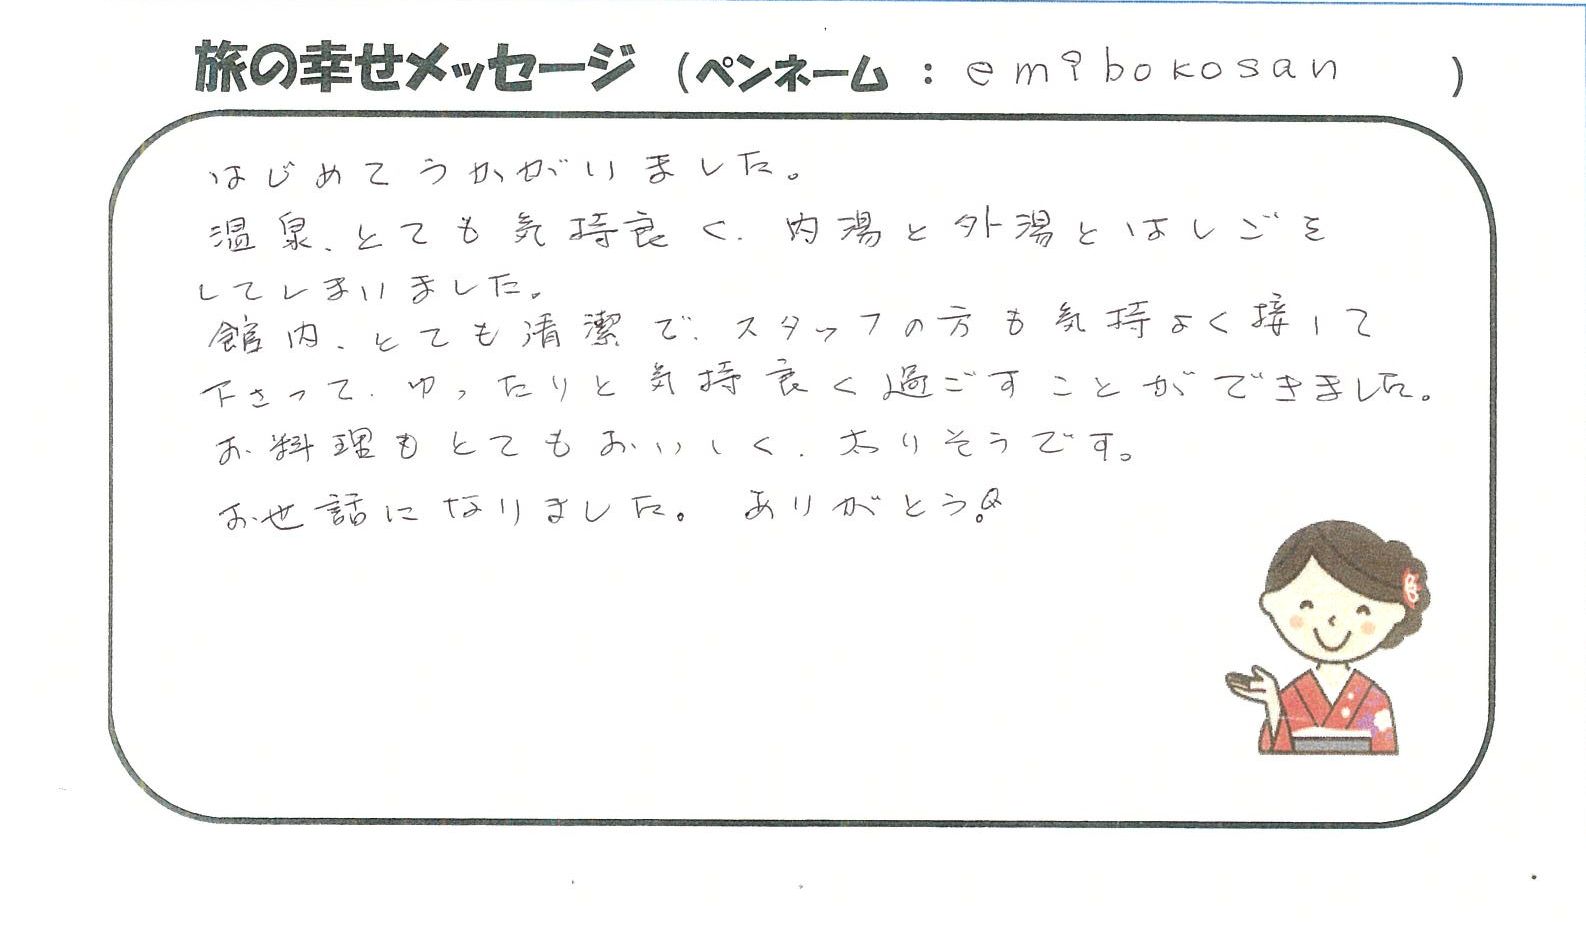 旅の幸せメッセージ (ペンネーム : emibokosan )
はじめてうかがいました。
温泉、とても気持良く、内湯と外湯とはしごを
してしまいました。
館内、とても清潔で、スタッフの方も気持よく接して
下さって、ゆったりと気持良く過ごすことができました。
お料理もとてもおいしく、太りそうです。
お世話になりました。 ありがとう。